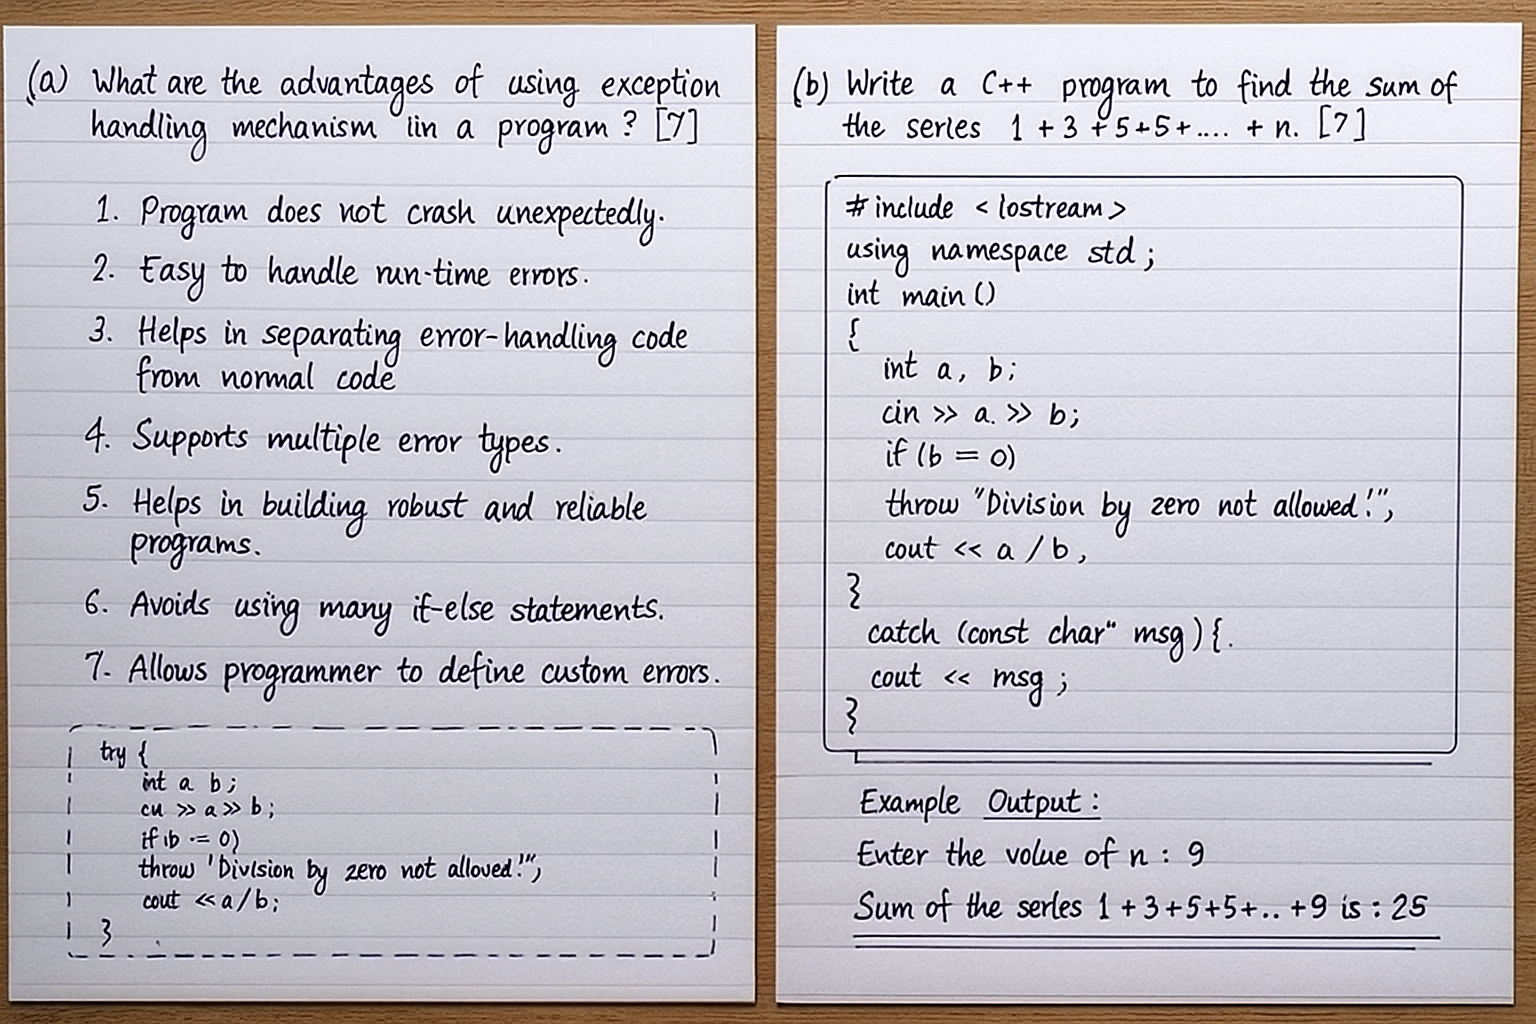 (a) What are the advantages of using exception
handling mechanism lin a program? [7]
1. Program does not crash unexpectedly.
2. Easy to handle run-time errors.
3. Helps in separating error-handling code
from normal code
4. Supports multiple error types.
5. Helps in building robust and reliable
programs.
6. Avoids using many if-else statements.
7. Allows programmer to define custom errors.
try {
int a b;
cu >> a >> b;
if ıb -= 0)
throw 'Divlsion by zero not alloved!",
cout << a/b;
}
(b) Write a C++ program to find the sum of
the serles 1 + 3 + 5+5+.... + n. [7]
# include < lostream >
using namespace std ;
int main ()
{
int a, b;
cin >> a. >> b;
if (b = 0)
throw "Division by zero not allowed!",
cout << a / b,
}
catch (const char" msg) {.
cout << msg ;
}
Example Output :
Enter the volue of n : 9
Sum of the serles 1 + 3+5+5+.. +9 is : 25